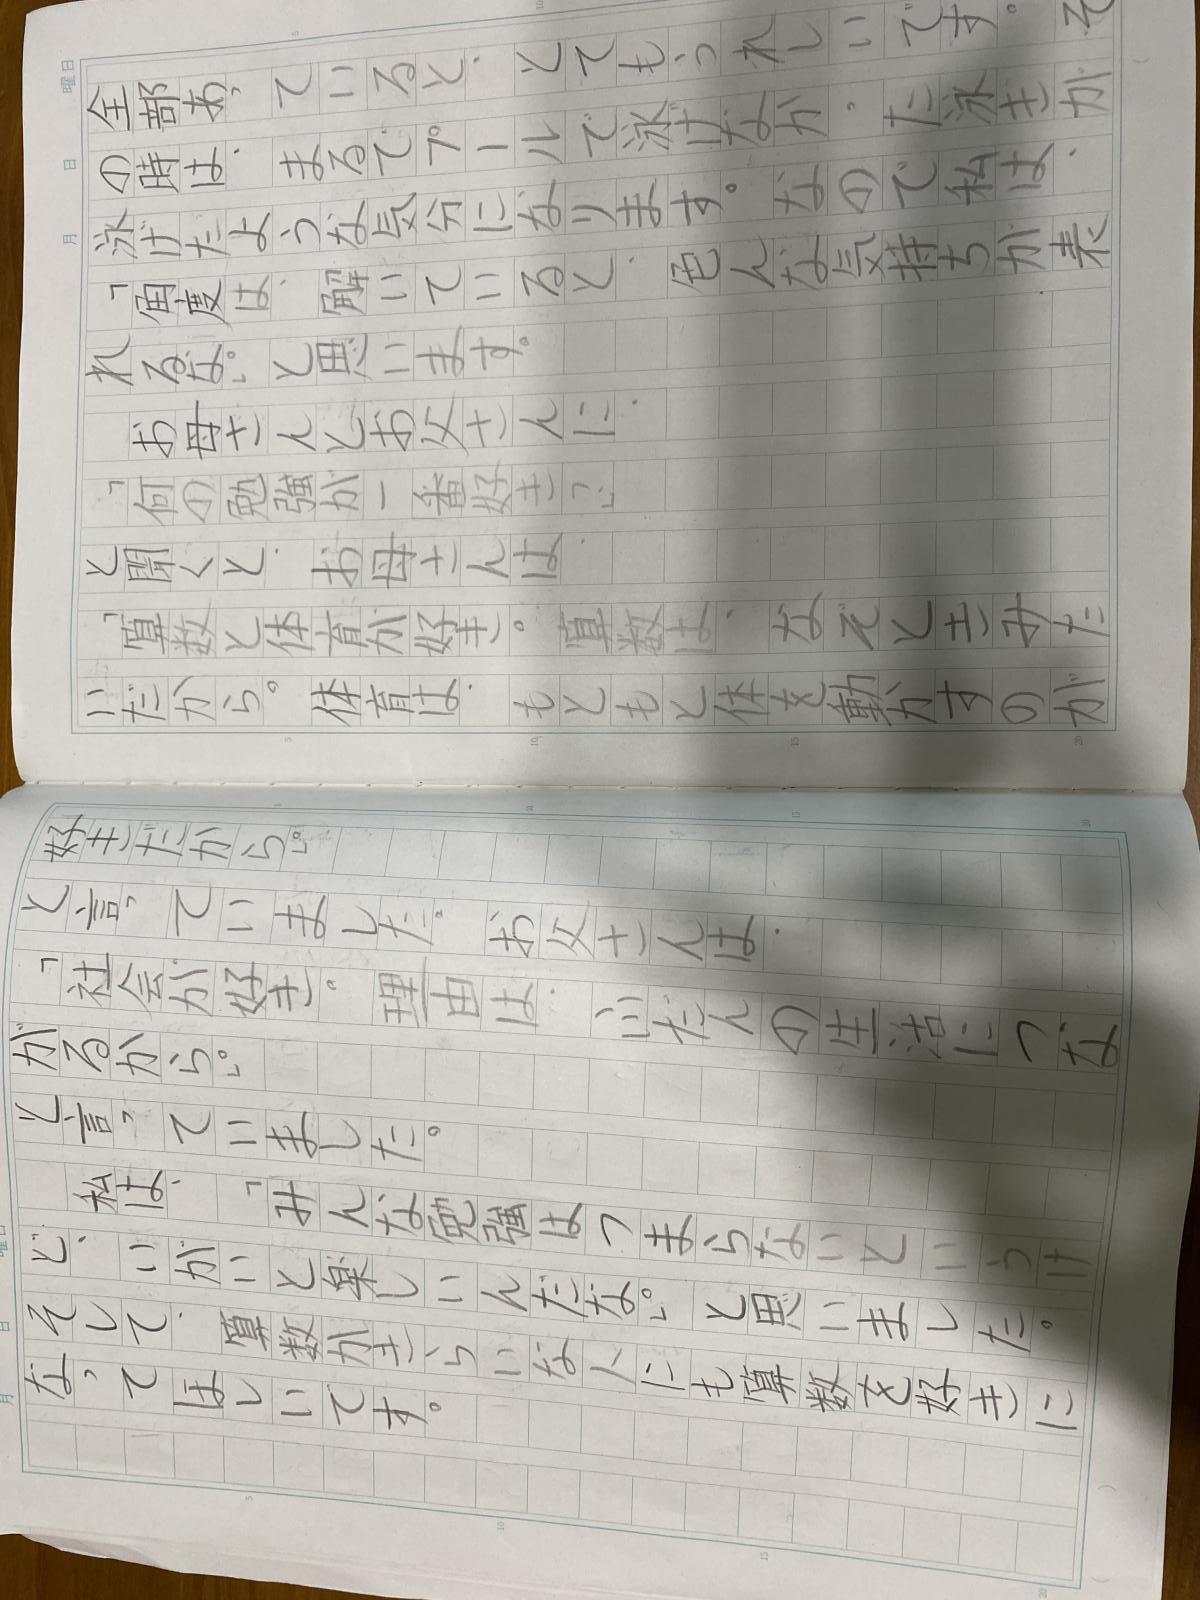 全部あっていると、とてもうれしいです。そ
の時は、まるでプールで泳げなかった泳きが
泳げたような気分になります。なので私は、
「角度は、解いていると、色んな気持ちが表
れるな。」と思います。
お母さんとお父さんに、
「何の勉強が一番好き？」
と聞くと、お母さんは、
「算数と体育が好き。算数は、なぞときみた
いだから。体育は、もともと体を動かすのが
好きだから。」
と言っていました。お父さんは、
「社会が好き。理由は、ふだんの生活につな
がるから。」
と言っていました。
私は、「みんな勉強はつまらないというけ
ど、いがいと楽しいんだな。」と思いました。
そして、算数がきらいな人にも算数を好きに
なってほしいです。
月 日 曜日
月 日 曜日
5
10
15
20
5
10
15
20